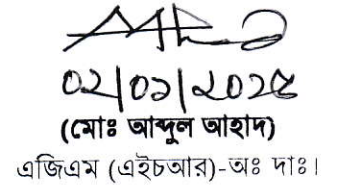 ০২/০১/২০২৫
(মোঃ আব্দুল আহাদ)
এজিএম (এইচআর)-অঃ দাঃ।